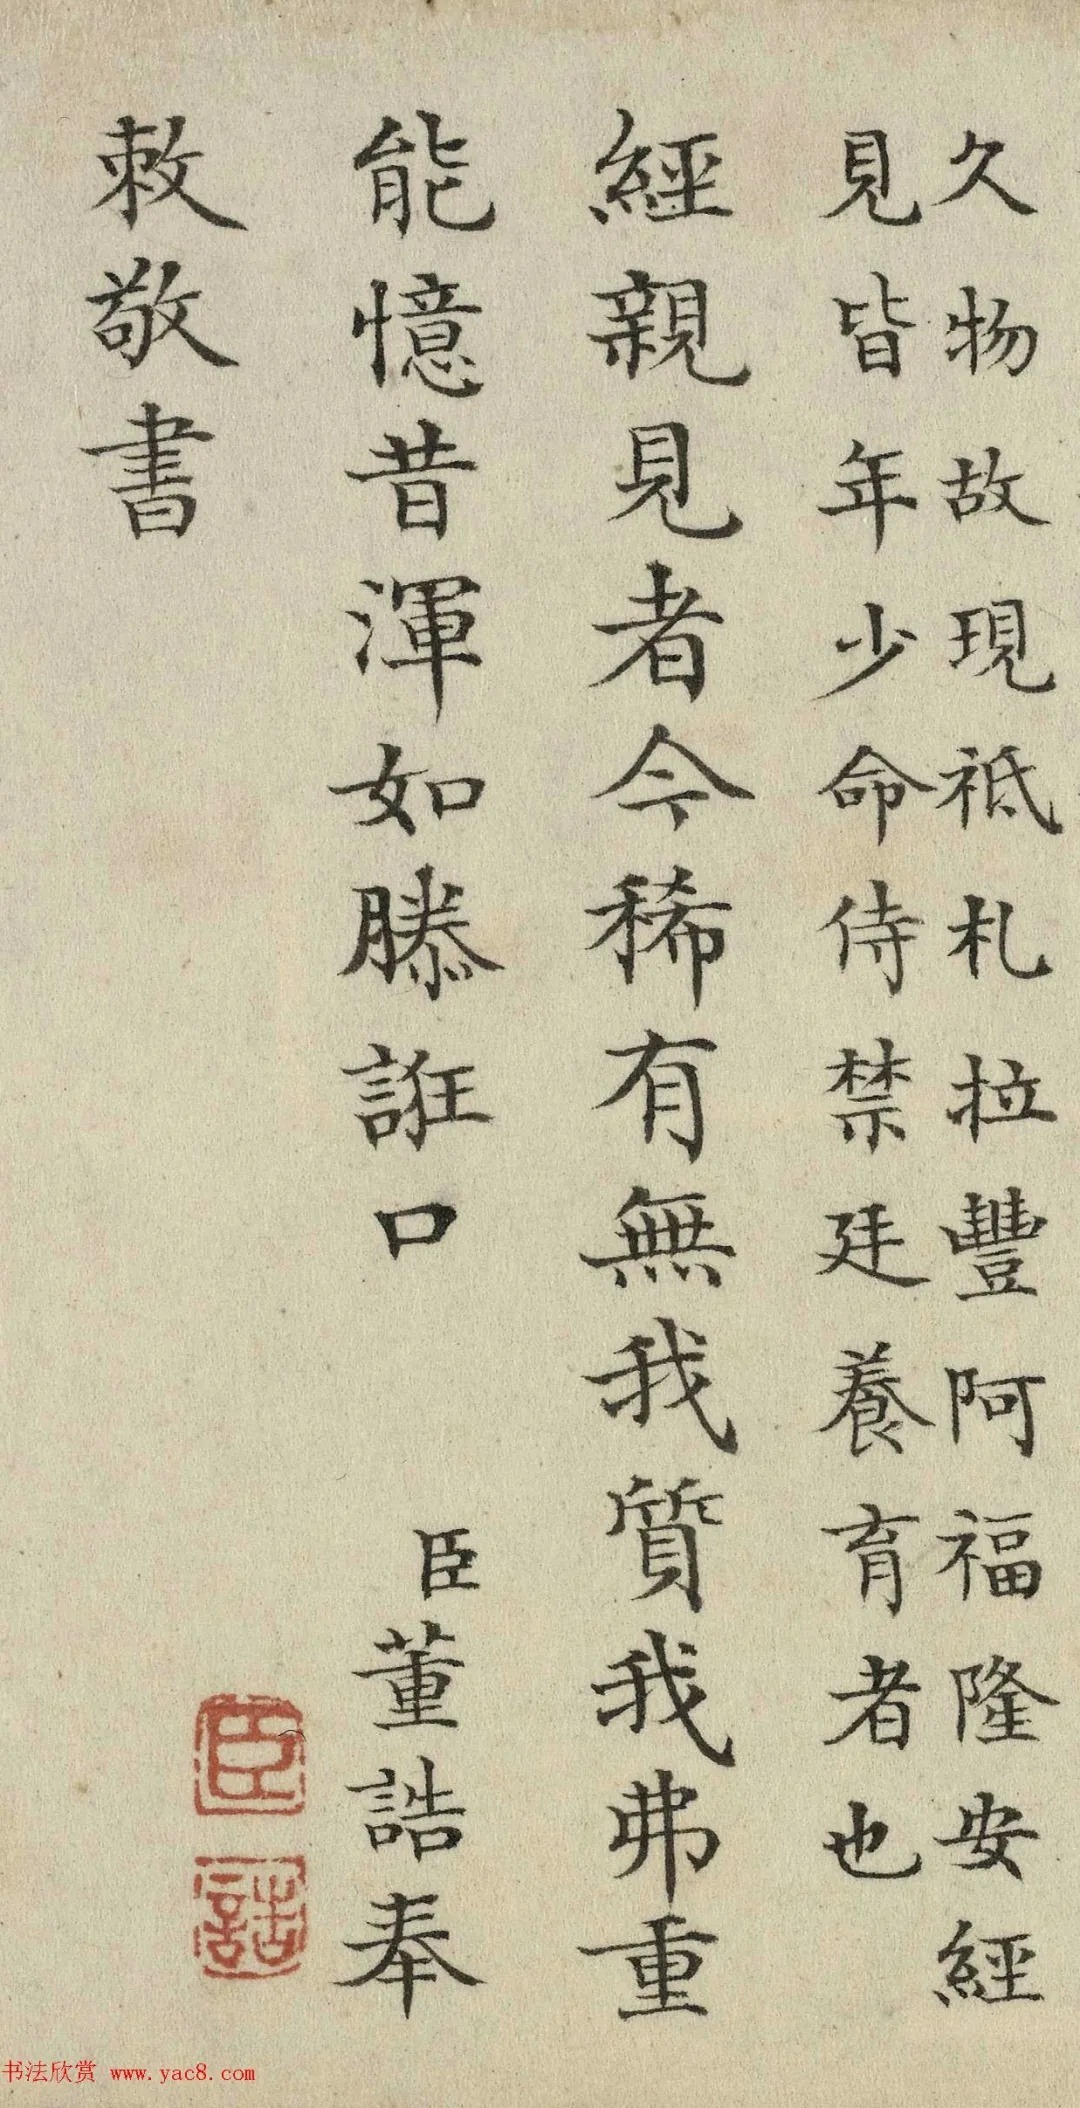 久物故現祗札拉豐阿福隆安經
見皆年少命侍禁廷養育者也
經親見者今稀有無我質我弗重
能憶昔渾如賸誑口 臣董誥奉
敕敬書
臣
誥
书法欣赏 www.yac8.com